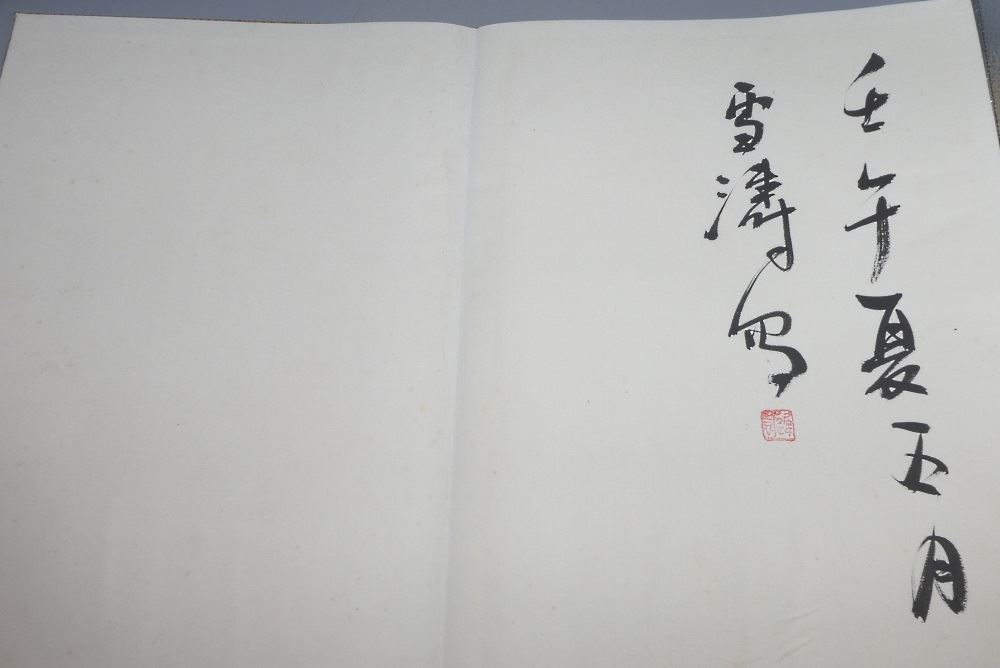 壬午夏五月
雪濤寫